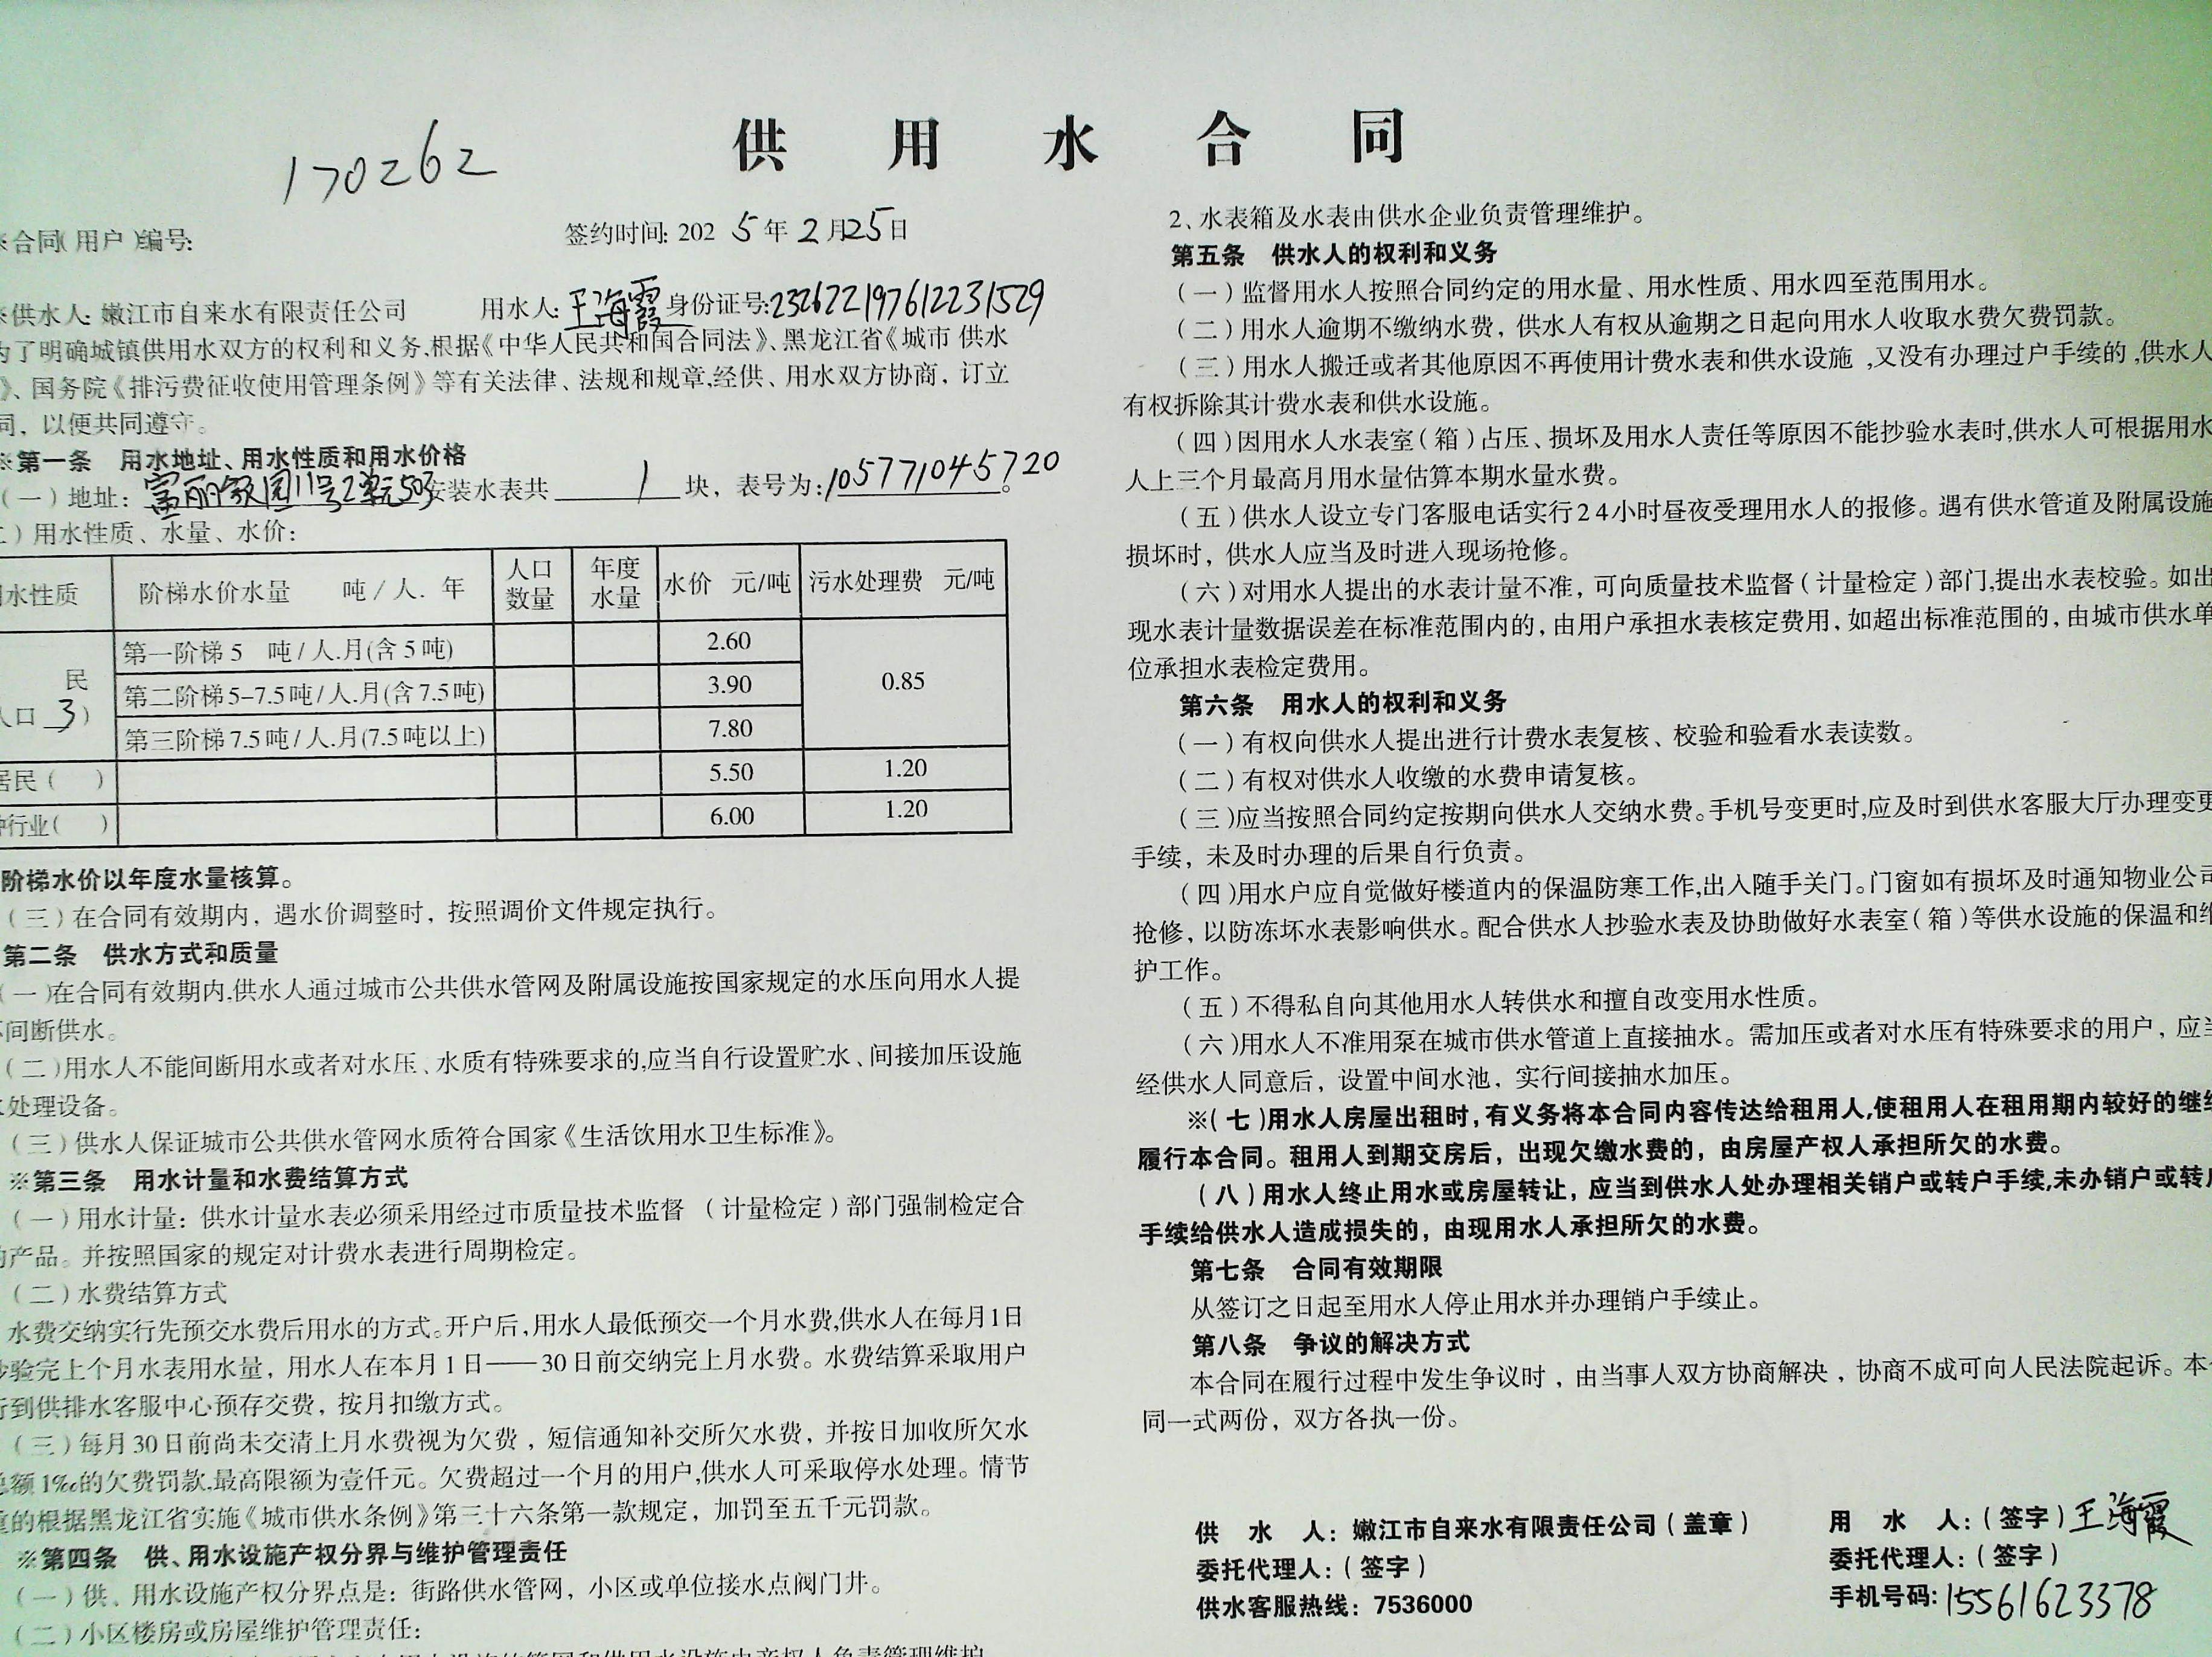 供用水合同
170262
※合同(用户)编号:
签约时间: 2025年2月25日
供水人: 嫩江市自来水有限责任公司 用水人: 王海霞 身份证号: 232622197612231529
为了明确城镇供用水双方的权利和义务,根据《中华人民共和国合同法》、黑龙江省《城市 供水
》、国务院《排污费征收使用管理条例》等有关法律、法规和规章,经供、用水双方协商，订立
同，以便共同遵守。
※第一条 用水地址、用水性质和用水价格
（一）地址：富丽家园11号2单元503安装水表共 1 块，表号为:105771045720。
）用水性质、水量、水价：
水性质 阶梯水价水量 吨/人. 年 人口数量 年度水量 水价 元/吨 污水处理费 元/吨
民
人口 3）
第一阶梯 5 吨/人.月(含 5 吨) 2.60
第二阶梯 5-7.5 吨/人.月(含 7.5 吨) 3.90 0.85
第三阶梯 7.5 吨/人.月(7.5 吨以上) 7.80
居民（ ） 5.50 1.20
行业（ ） 6.00 1.20
阶梯水价以年度水量核算。
（三）在合同有效期内，遇水价调整时，按照调价文件规定执行。
第二条 供水方式和质量
（一）在合同有效期内,供水人通过城市公共供水管网及附属设施按国家规定的水压向用水人提
间断供水。
（二）用水人不能间断用水或者对水压、水质有特殊要求的,应当自行设置贮水、间接加压设施
处理设备。
（三）供水人保证城市公共供水管网水质符合国家《生活饮用水卫生标准》。
※第三条 用水计量和水费结算方式
（一）用水计量：供水计量水表必须采用经过市质量技术监督 （计量检定）部门强制检定合
的产品。并按照国家的规定对计费水表进行周期检定。
（二）水费结算方式
水费交纳实行先预交水费后用水的方式。开户后,用水人最低预交一个月水费,供水人在每月1日
抄验完上个月水表用水量，用水人在本月 1 日——30 日前交纳完上月水费。水费结算采取用户
行到供排水客服中心预存交费，按月扣缴方式。
（三）每月 30 日前尚未交清上月水费视为欠费，短信通知补交所欠水费，并按日加收所欠水
总额 1‰的欠费罚款,最高限额为壹仟元。欠费超过一个月的用户,供水人可采取停水处理。情节
重的根据黑龙江省实施《城市供水条例》第三十六条第一款规定，加罚至五千元罚款。
※第四条 供、用水设施产权分界与维护管理责任
（一）供、用水设施产权分界点是：街路供水管网，小区或单位接水点阀门井。
（二）小区楼房或房屋维护管理责任：
2、水表箱及水表由供水企业负责管理维护。
第五条 供水人的权利和义务
（一）监督用水人按照合同约定的用水量、用水性质、用水四至范围用水。
（二）用水人逾期不缴纳水费，供水人有权从逾期之日起向用水人收取水费欠费罚款。
（三）用水人搬迁或者其他原因不再使用计费水表和供水设施 ,又没有办理过户手续的 ,供水人
有权拆除其计费水表和供水设施。
（四）因用水人水表室（箱）占压、损坏及用水人责任等原因不能抄验水表时,供水人可根据用水
人上三个月最高月用水量估算本期水量水费。
（五）供水人设立专门客服电话实行24小时昼夜受理用水人的报修。遇有供水管道及附属设施
损坏时，供水人应当及时进入现场抢修。
（六）对用水人提出的水表计量不准，可向质量技术监督（计量检定）部门,提出水表校验。如出
现水表计量数据误差在标准范围内的，由用户承担水表核定费用，如超出标准范围的，由城市供水单
位承担水表检定费用。
第六条 用水人的权利和义务
（一）有权向供水人提出进行计费水表复核、校验和验看水表读数。
（二）有权对供水人收缴的水费申请复核。
（三）应当按照合同约定按期向供水人交纳水费。手机号变更时,应及时到供水客服大厅办理变更
手续，未及时办理的后果自行负责。
（四）用水户应自觉做好楼道内的保温防寒工作,出入随手关门。门窗如有损坏及时通知物业公司
抢修，以防冻坏水表影响供水。配合供水人抄验水表及协助做好水表室（箱）等供水设施的保温和维
护工作。
（五）不得私自向其他用水人转供水和擅自改变用水性质。
（六）用水人不准用泵在城市供水管道上直接抽水。需加压或者对水压有特殊要求的用户，应当
经供水人同意后，设置中间水池，实行间接抽水加压。
※（七）用水人房屋出租时，有义务将本合同内容传达给租用人,使租用人在租用期内较好的继续
履行本合同。租用人到期交房后，出现欠缴水费的，由房屋产权人承担所欠的水费。
（八）用水人终止用水或房屋转让，应当到供水人处办理相关销户或转户手续,未办销户或转户
手续给供水人造成损失的，由现用水人承担所欠的水费。
第七条 合同有效期限
从签订之日起至用水人停止用水并办理销户手续止。
第八条 争议的解决方式
本合同在履行过程中发生争议时，由当事人双方协商解决，协商不成可向人民法院起诉。本
同一式两份，双方各执一份。
供 水 人：嫩江市自来水有限责任公司（盖章） 用 水 人：（签字）王海霞
委托代理人：（签字） 委托代理人：（签字）
供水客服热线：7536000 手机号码：15561623378